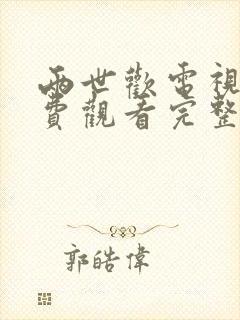 兩世歡電視
費觀看完整
郭皓偉